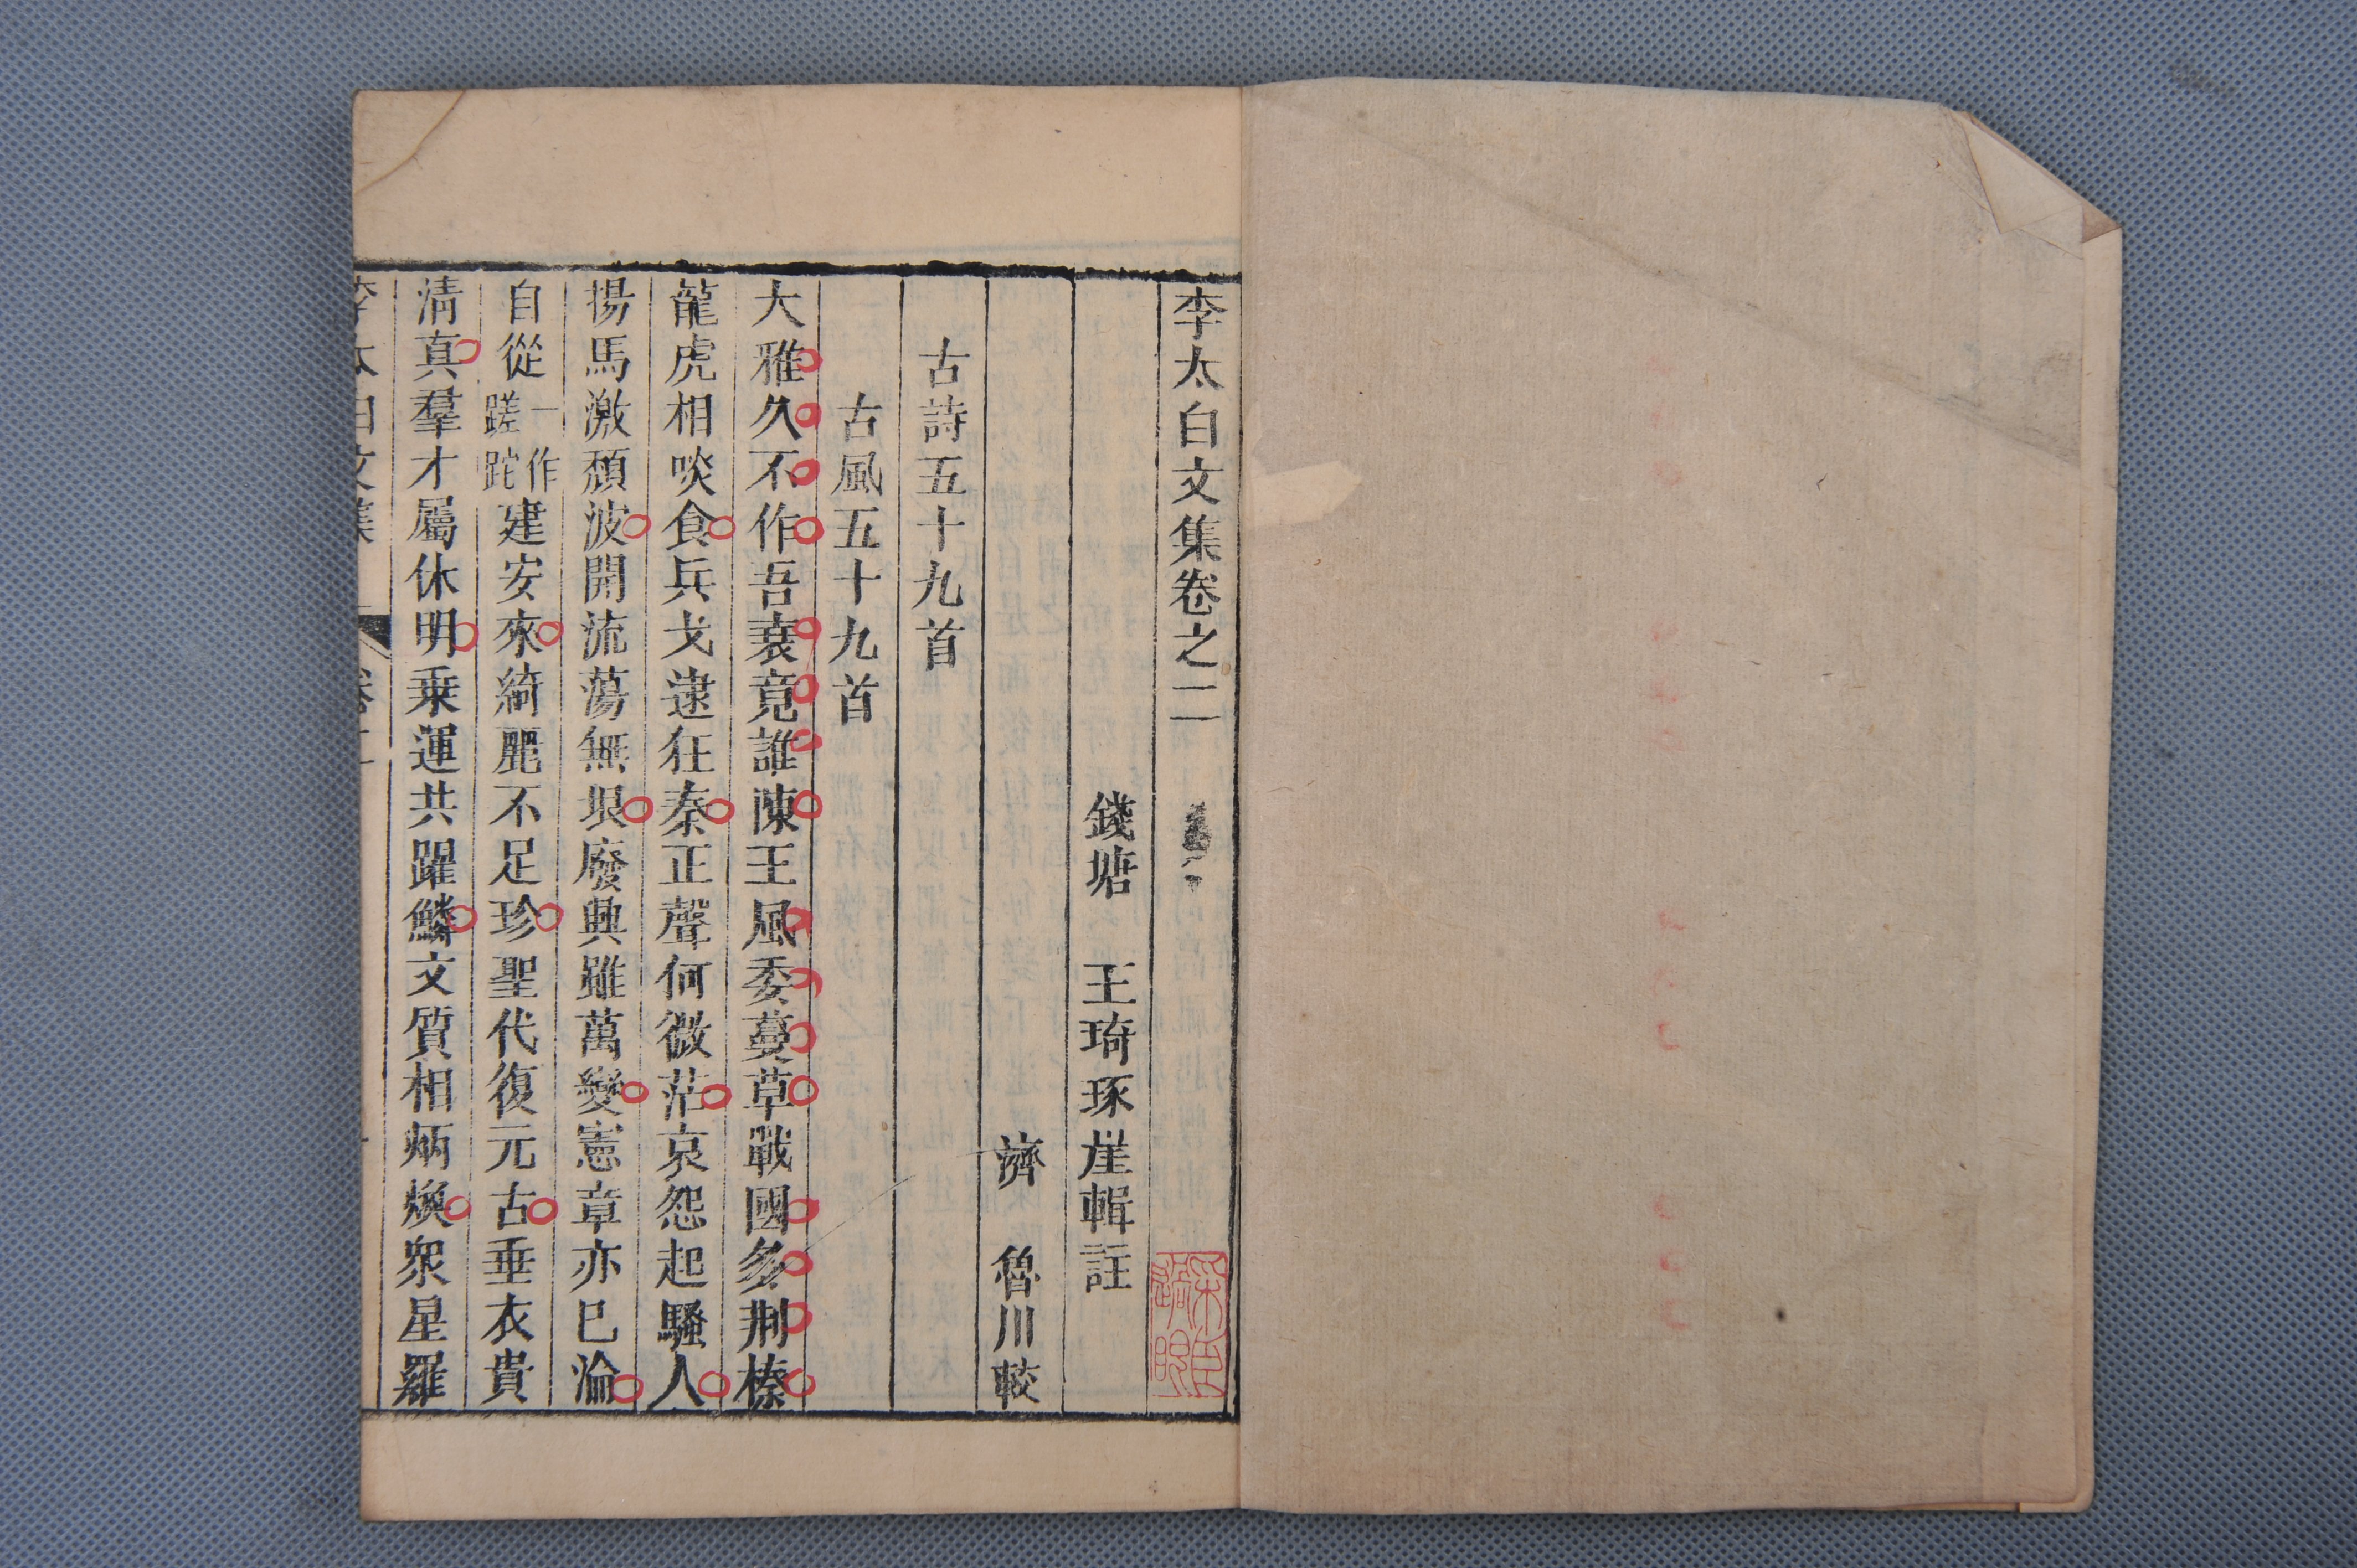 李太白文集卷之二
錢塘 王琦琢崖輯註
濟 魯川較
古詩五十九首
古風五十九首
大雅久不作吾衰竟誰陳王風委蔓草戰國多荆榛
龍虎相啖食兵戈逮狂秦正聲何微茫哀怨起騷人
揚馬激頹波開流蕩無垠廢興雖萬變憲章亦已淪
自從一作蹉跎建安來綺麗不足珍聖代復元古垂衣貴
清真羣才屬休明乗運共躍鱗文質相炳煥衆星羅
李太白文集 卷二